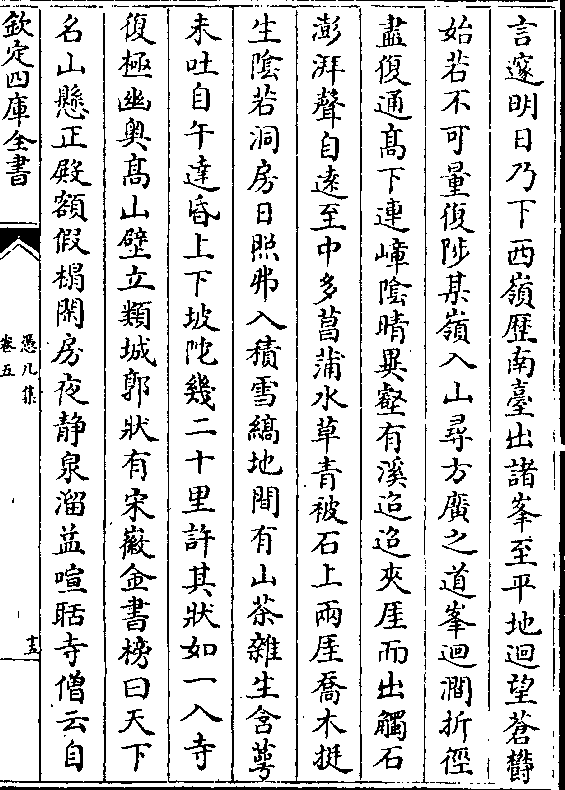 言邃明日乃下西嶺歷南臺出諸峯至平地迴望蒼欝
始若不可量復陟某嶺入山尋方廣之道峯迴澗折徑
盡復通髙下連嶂陰晴異壑有溪迢迢夾厓而出觸石
澎湃聲自逺至中多菖蒲水草青被石上兩厓喬木挺
生隂若洞房日照弗入積雪縞地間有山茶雜生含萼
未吐自午達昏上下坡陀幾二十里許其狀如一入寺
復極幽奥髙山壁立類城郭狀有宋徽金書榜曰天下
名山懸正殿額假榻闗房夜静泉溜益喧聒寺僧云自
欽定四庫全書
憑几集
卷五
十五